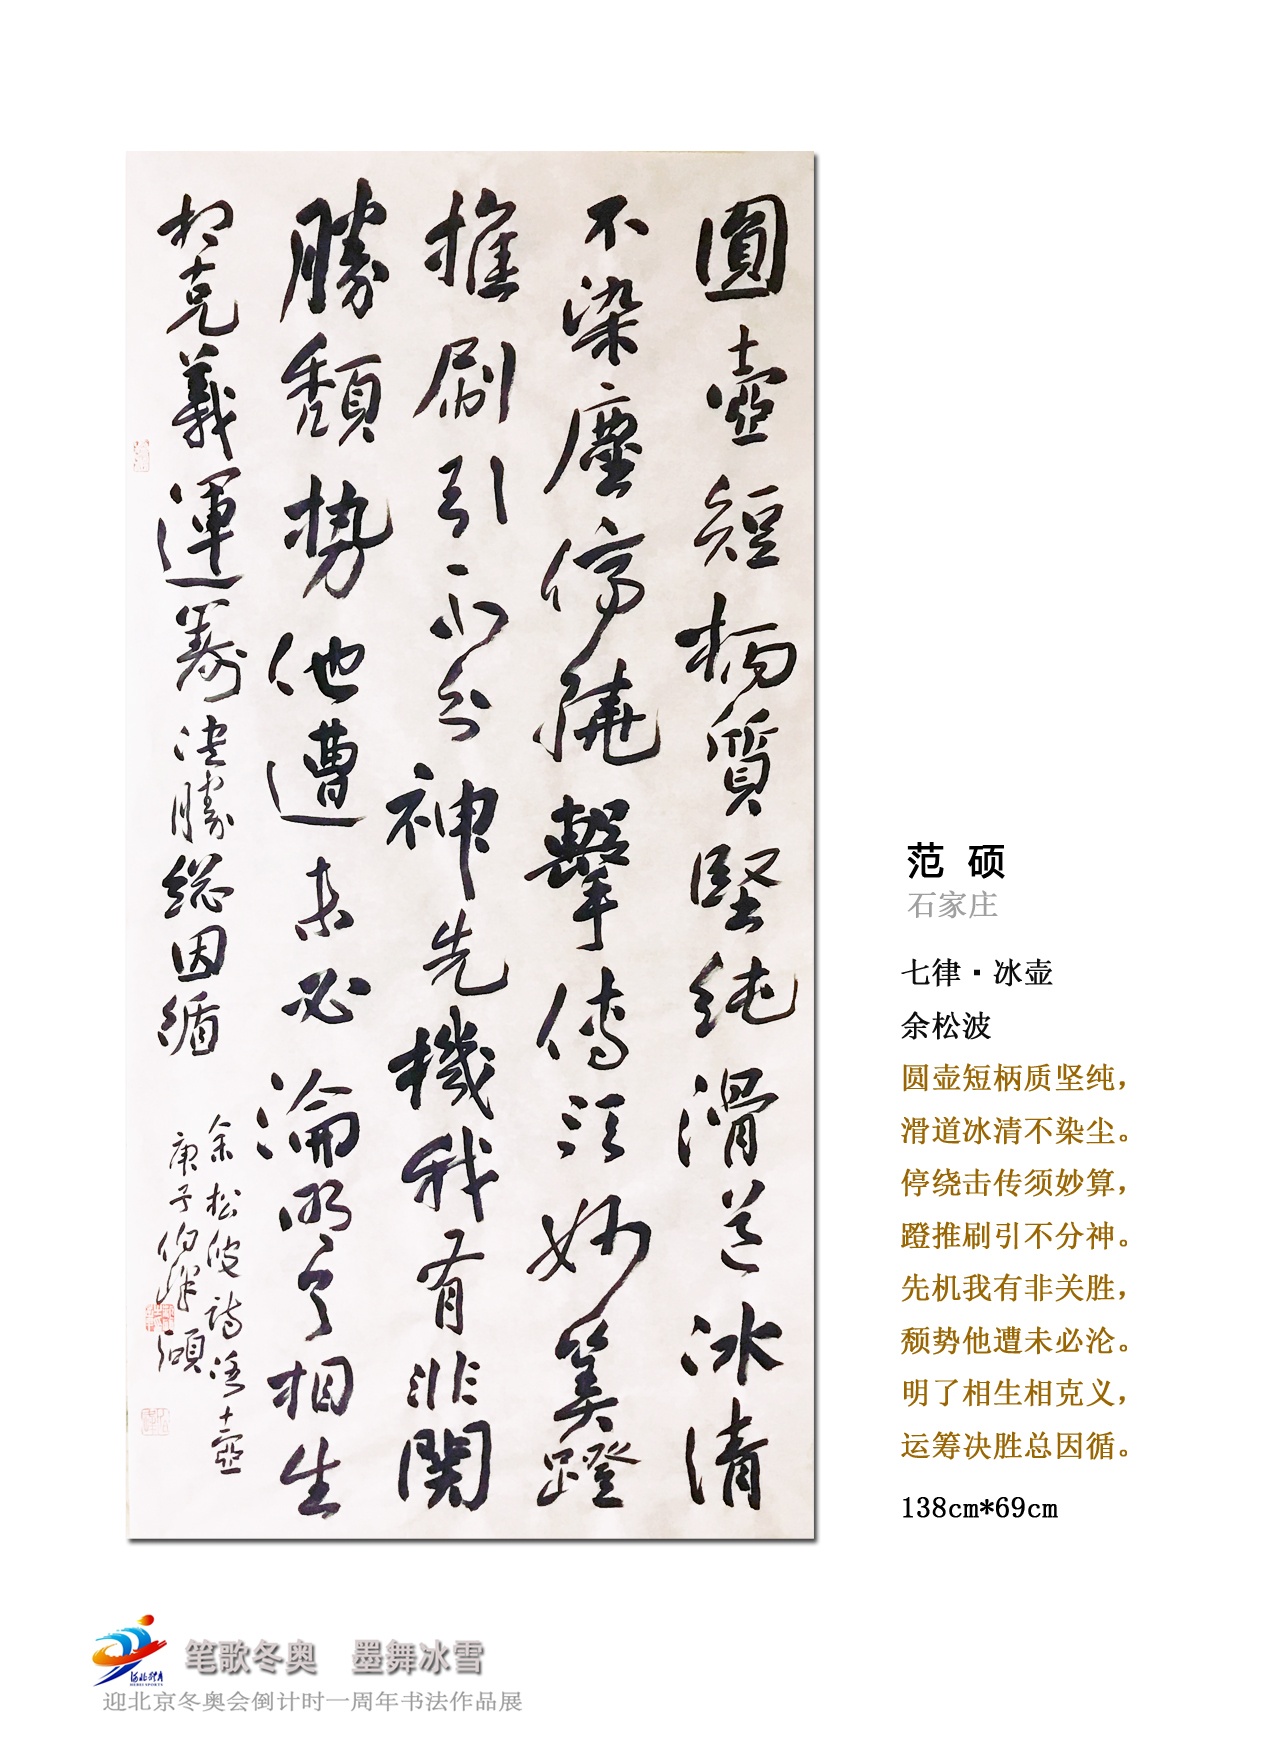 圓壺短柄質堅純滑道冰清
不染塵停繞擊傳須妙算蹬
推刷引不分神先機我有非関
勝頹势他遭未必淪明了相生
相克義運籌决勝総因循
余松波詩冰壺
庚子
范 硕
石家庄
七律·冰壶
余松波
圆壶短柄质坚纯，
滑道冰清不染尘。
停绕击传须妙算，
蹬推刷引不分神。
先机我有非关胜，
颓势他遭未必沦。
明了相生相克义，
运筹决胜总因循。
138cm*69cm
笔歌冬奥 墨舞冰雪
河北体育
HEBEI SPORTS
迎北京冬奥会倒计时一周年书法作品展